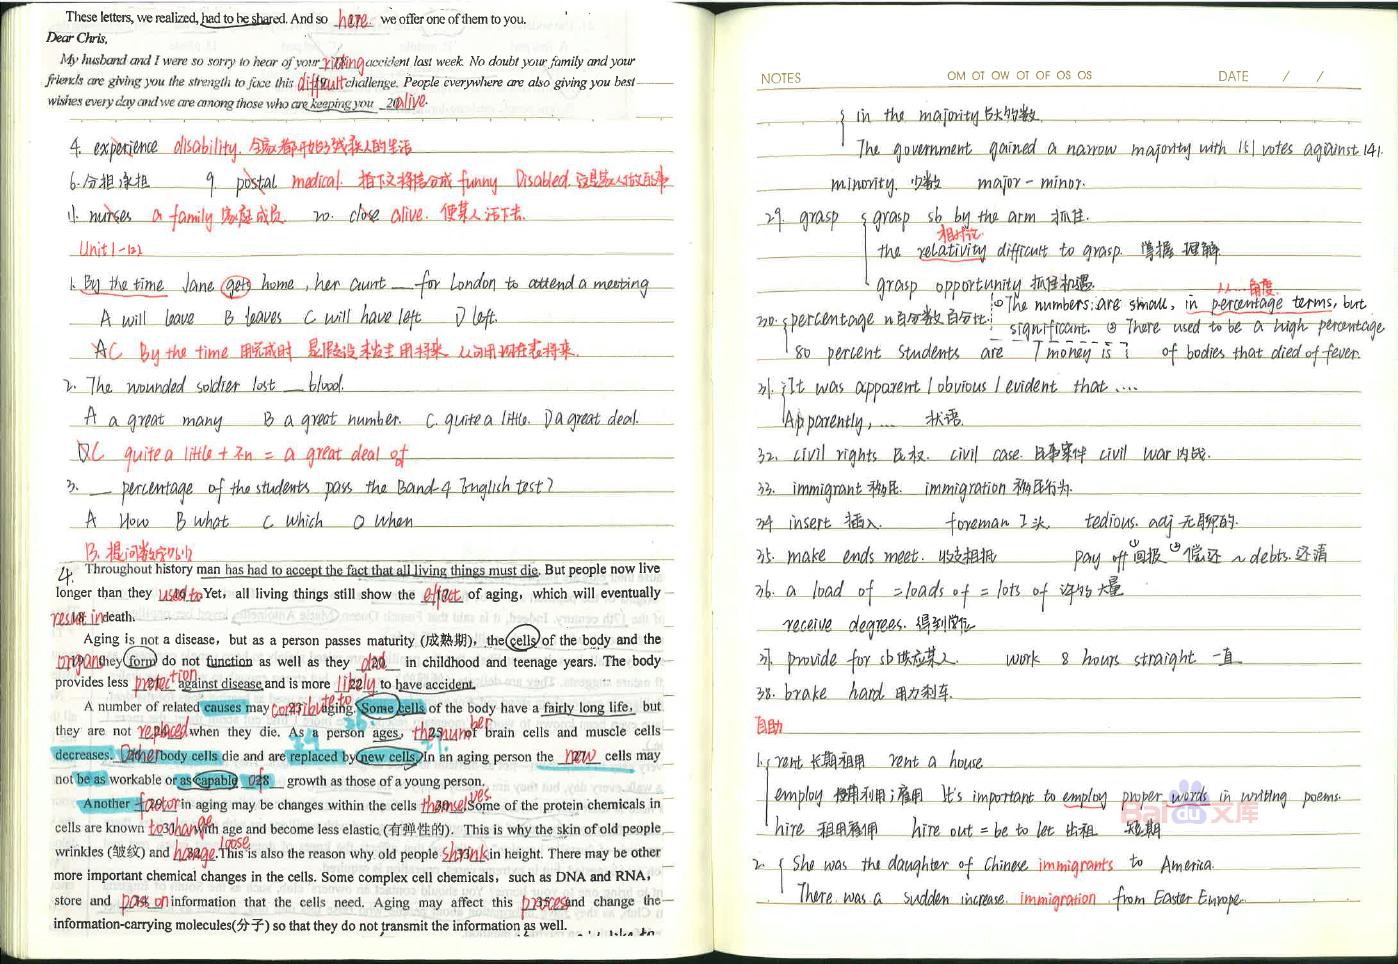 These letters, we realized, had to be shared. And so here we offer one of them to you.
Dear Chris,
My husband and I were so sorry to hear of your riding accident last week. No doubt your family and your
friends are giving you the strength to face this difficult challenge. People everywhere are also giving you best
wishes every day and we are among those who are keeping you 20 alive.
4. experience disability.
6. 分担 承担 9. postal medical. funny Disabled.
11. nurses a family 家庭成员 20. close alive. 使某人活下去.
Unit 1-122
1. By the time Jane gets home, her aunt __ for London to attend a meeting
A will leave B leaves C will have left D left.
AC By the time 用完成时
2. The wounded soldier lost __ blood.
A a great many B a great number. C. quite a little. D a great deal.
DC quite a little + 不n = a great deal of
3. __ percentage of the students pass the Band 4 English test?
A How B what C which D when
B.
4. Throughout history man has had to accept the fact that all living things must die. But people now live
longer than they used to. Yet, all living things still show the effect of aging, which will eventually
result in death.
Aging is not a disease, but as a person passes maturity (成熟期), the cells of the body and the
organs they form do not function as well as they did in childhood and teenage years. The body
provides less protection against disease and is more likely to have accident.
A number of related causes may contribute to aging. Some cells of the body have a fairly long life, but
they are not replaced when they die. As a person ages, the number of brain cells and muscle cells
decreases. Other body cells die and are replaced by new cells. In an aging person the new cells may
not be as workable or as capable of growth as those of a young person.
Another factor in aging may be changes within the cells themselves. Some of the protein chemicals in
cells are known to change with age and become less elastic (有弹性的). This is why the skin of old people
wrinkles (皱纹) and hangs loose. This is also the reason why old people shrink in height. There may be other
more important chemical changes in the cells. Some complex cell chemicals, such as DNA and RNA,
store and pass on information that the cells need. Aging may affect this process and change the
information-carrying molecules(分子) so that they do not transmit the information as well.
NOTES OM OT OW OT OF OS OS DATE / /
in the majority 占大多数.
The government gained a narrow majority with 151 votes against 141.
minority. 少数 major - minor.
29. grasp grasp sb by the arm 抓住.
相对论
the relativity difficult to grasp. 掌握 理解
grasp opportunity 抓住机遇
从……角度
30. percentage n 百分数 百分比. ① The numbers are small, in percentage terms, but
significant. ② There used to be a high percentage
80 percent students are money is of bodies that died of fever.
31. It was apparent / obvious / evident that ....
Apparently, ... 状语.
32. civil rights 民权. civil case. 民事案件 civil war 内战.
33. immigrant 移民. immigration 移民行为.
34 insert 插入. foreman 工头. tedious. adj 无聊的.
35. make ends meet. 收支相抵 pay off ①回报 ②偿还 ~ debts. 还清
36. a load of = loads of = lots of 许多 大量
receive degrees. 得到学位
37. provide for sb 供应某人. work 8 hours straight 一直
38. brake hard 用力刹车.
自助
1. rent 长期租用 rent a house
employ 利用；雇用 It's important to employ proper words in writing poems.
hire 租用 雇佣 hire out = be to let 出租 短期
2. She was the daughter of Chinese immigrants to America.
There was a sudden increase immigration from Easter Europe.
Bai du 文库